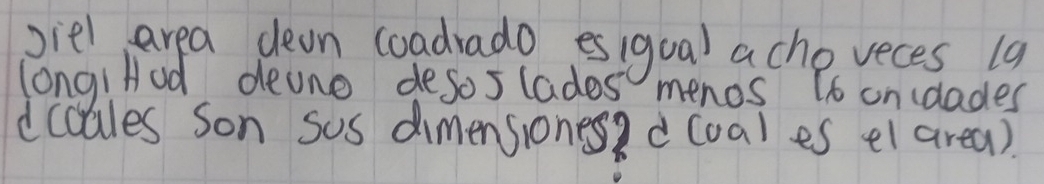 siel area deun coadrado es igual a cho veces la
longittud deuno desos lados menos 16 unidades
¿cuales son sus dimensiones? ¿cual es el area).